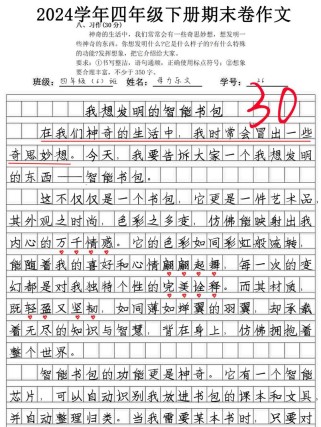 2024学年四年级下册期末卷作文
八、习作(30分)
神奇的生活中，我们常常会有一些奇思妙想，想发明一
些神奇的东西，你想发明什么？它是什么样子的？有什么特殊
的功能？把它写下来吧！
要求：①书写整洁，语句通顺，正确使用标点符号；②想象
要合理丰富，不少于350字。
班级：四年级(2)班 姓名： 学号：
我想发明的智能书包
30
在我们神奇的生活中，我时常会冒出一些
奇思妙想。今天，我要告诉大家一个我想发明
的东西——智能书包。
这不仅仅是一个书包，它更是一件艺术品，
其外观之时尚，色彩之多变，仿佛能映射出我
内心的万千情感。它的色彩如同彩虹般流转，
能随着我的喜好和心情翩翩起舞，每一次的变
幻都是对我独特个性的完美诠释。而其材质，
既轻盈又坚韧，如同薄如蝉翼的羽翼，却承载
着无尽的知识与智慧，背在身上，仿佛拥抱着
整个世界。
智能书包的功能更是神奇。它有一个智能
芯片，可以自动识别我放进书包的课本和文具，
并自动整理归类。当我需要某本书时，只要对